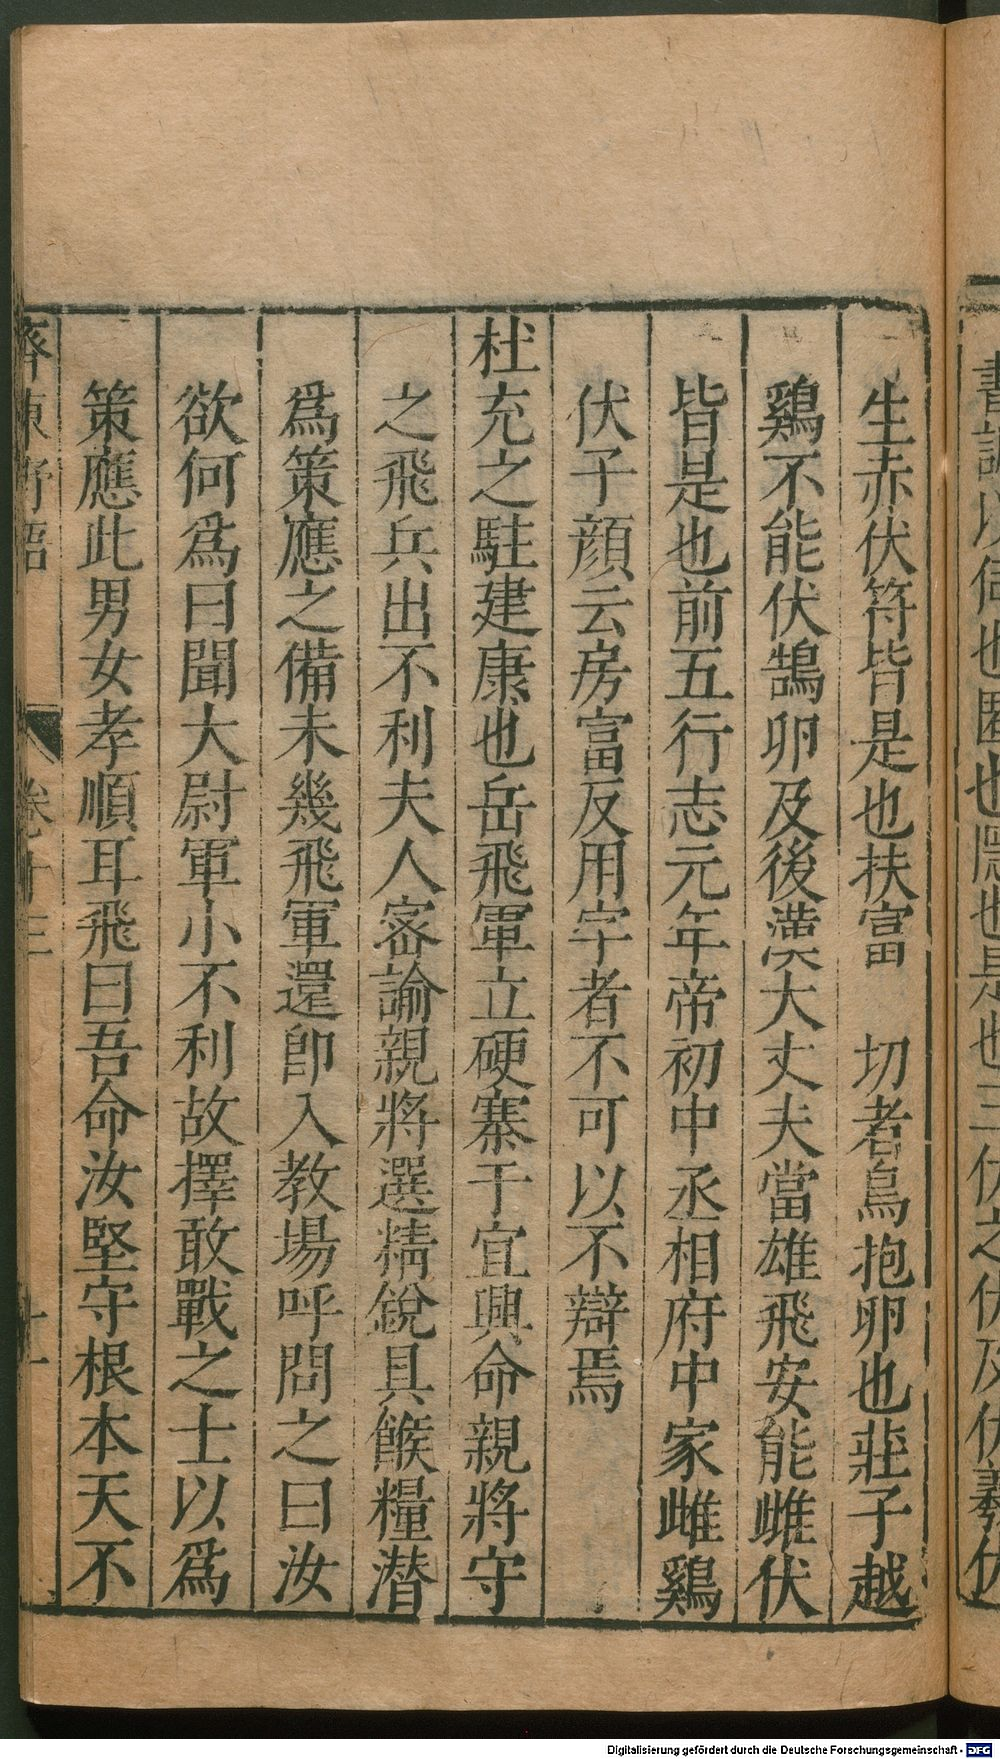 生赤伏符皆是也扶富 切者鳥抱卵也莊子越
鷄不能伏鵠卵及後漢大丈夫當雄飛安能雌伏
皆是也前五行志元年帝初中丞相府中家雌鷄
伏子顔云房富反用字者不可以不辯焉
杜充之駐建康也岳飛軍立硬寨于宜興命親將守
之飛兵出不利夫人密諭親將選精銳具餱糧潜
爲策應之備未幾飛軍還卽入教場呼問之曰汝
欲何爲曰聞大尉軍小不利故擇敢戰之士以爲
策應此男女孝順耳飛曰吾命汝堅守根本天不
齊東野語 卷十三 十一
Digitalisierung gefördert durch die Deutsche Forschungsgemeinschaft - DFG